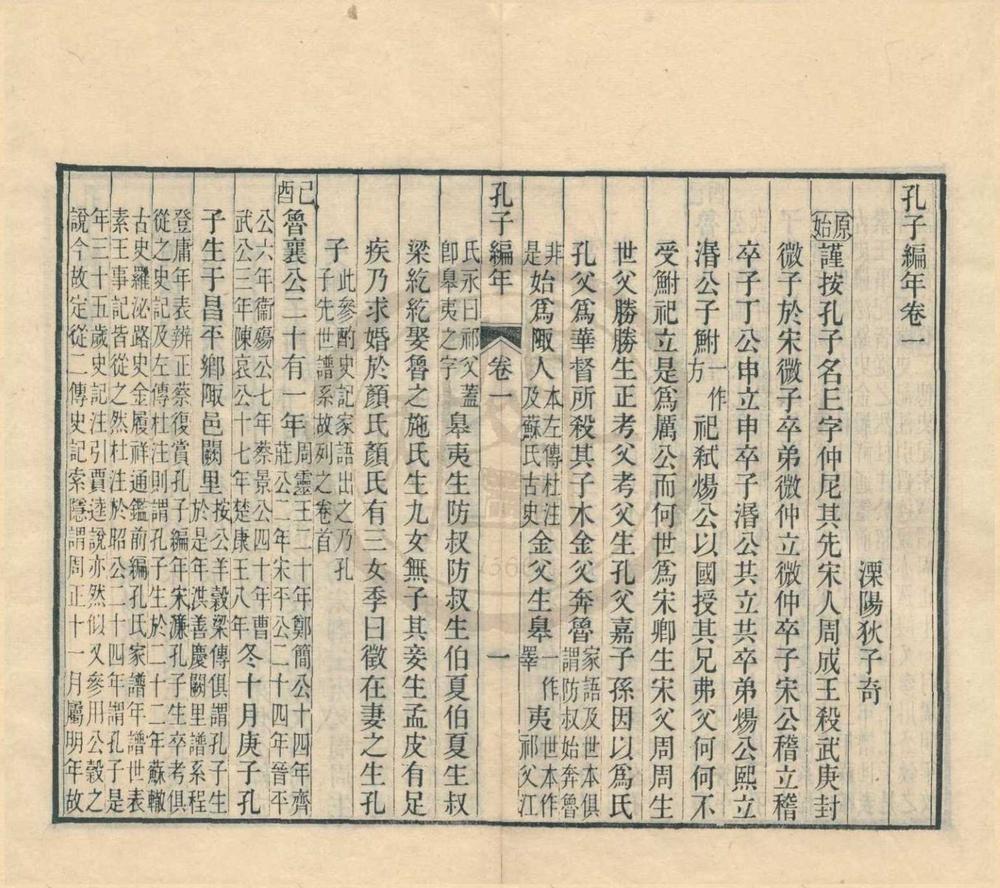 孔子編年卷一
溧陽狄子奇
原始謹按孔子名丘字仲尼其先宋人周成王殺武庚封
微子於宋微子卒弟微仲立微仲卒子宋公稽立稽
卒子丁公申立申卒子湣公共立共卒弟煬公熙立
湣公子鮒一作方祀弒煬公以國授其兄弗父何何不
受鮒祀立是爲厲公而何世爲宋卿生宋父周周生
世父勝勝生正考父考父生孔父嘉子孫因以爲氏
孔父爲華督所殺其子木金父奔魯家語及世本俱謂防叔始奔魯
非是始爲陬人本左傳杜注及蘇氏古史金父生皋一作睪夷世本作祁父江
孔子編年 卷一 一
氏永曰祁父蓋卽皋夷之字皋夷生防叔防叔生伯夏伯夏生叔
梁紇紇娶魯之施氏生九女無子其妾生孟皮有足
疾乃求婚於顏氏顏氏有三女季曰徵在妻之生孔
子此參酌史記家語出之乃孔子先世譜系故列之卷首
己酉魯襄公二十有一年周靈王二十年鄭簡公十四年齊莊公二年宋平公二十四年晉平
公六年衞殤公七年蔡景公四十年曹武公三年陳哀公十七年楚康王八年冬十月庚子孔
子生于昌平鄉陬邑闕里按公羊穀梁傳俱謂孔子生於是年洪善慶闕里譜系程
登庸年表辨正蔡復賞孔子編年宋濂孔子生卒考俱從之史記及左傳杜注則謂孔子生於二十二年蘇轍
古史羅泌路史金履祥通鑑前編孔氏家譜年譜世表素王事記皆從之然杜注於昭公二十四年謂孔子是
年三十五歲史記注引賈逵說亦然似又參用公穀之說今故定從二傳史記索隱謂周正十一月屬明年故